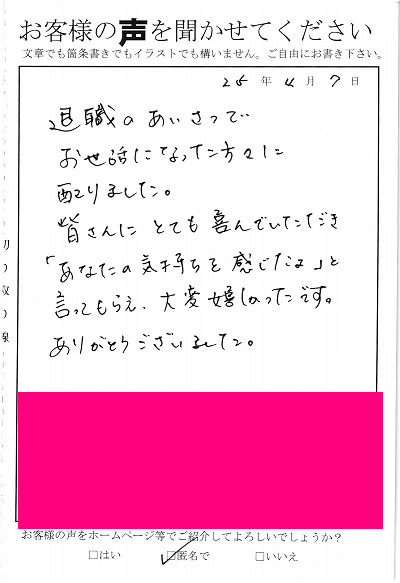 お客様の声を聞かせてください
文章でも箇条書きでもイラストでも構いません。ご自由にお書き下さい。
25年4月7日
退職のあいさつで
お世話になった方々に
配りました。
皆さんにとても喜んでいただき
「あなたの気持ちを感じたよ」と
言ってもらえ、大変嬉しかったです。
ありがとうございました。
切り取り線
お客様の声をホームページ等でご紹介してよろしいでしょうか？
□はい ☑匿名で □いいえ